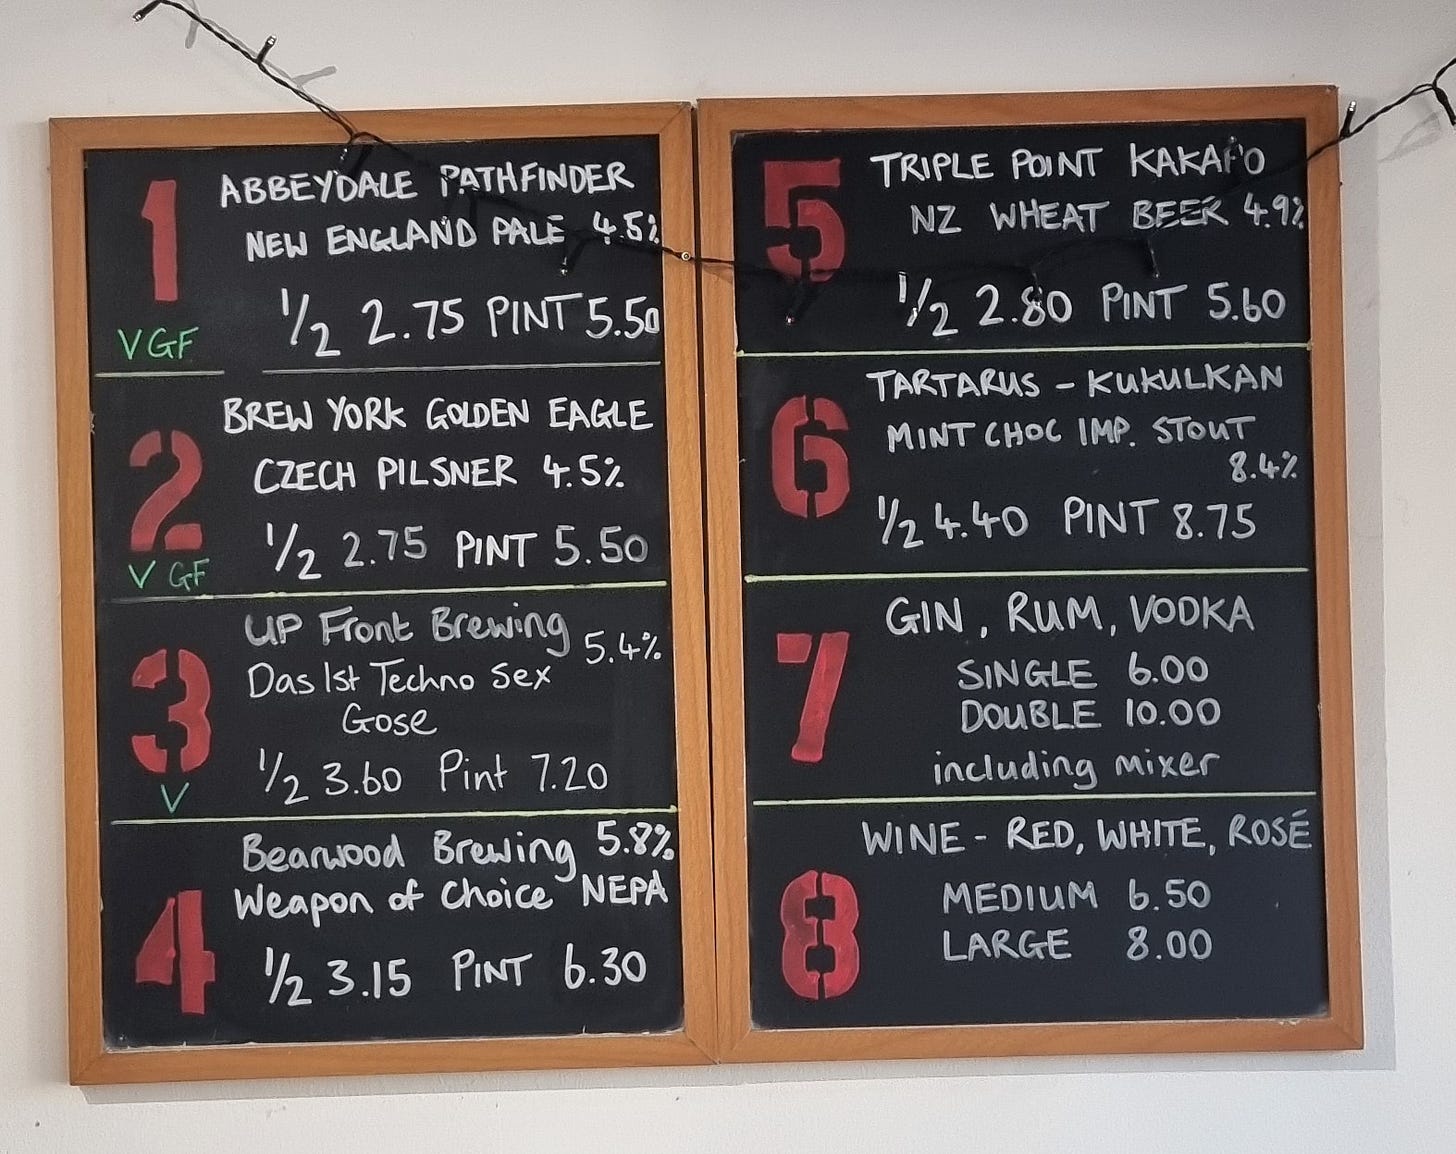 1
ABBEYDALE PATHFINDER
NEW ENGLAND PALE 4.5%
1/2 2.75 PINT 5.50
V GF
2
BREW YORK GOLDEN EAGLE
CZECH PILSNER 4.5%
1/2 2.75 PINT 5.50
V GF
3
UP Front Brewing 5.4%
Das Ist Techno Sex
Gose
1/2 3.60 Pint 7.20
V
4
Bearwood Brewing 5.8%
Weapon of Choice NEPA
1/2 3.15 PINT 6.30
5
TRIPLE POINT KAKAPO
NZ WHEAT BEER 4.9%
1/2 2.80 PINT 5.60
6
TARTARUS - KUKULKAN
MINT CHOC IMP. STOUT
8.4%
1/2 4.40 PINT 8.75
7
GIN, RUM, VODKA
SINGLE 6.00
DOUBLE 10.00
including mixer
8
WINE - RED, WHITE, ROSÉ
MEDIUM 6.50
LARGE 8.00